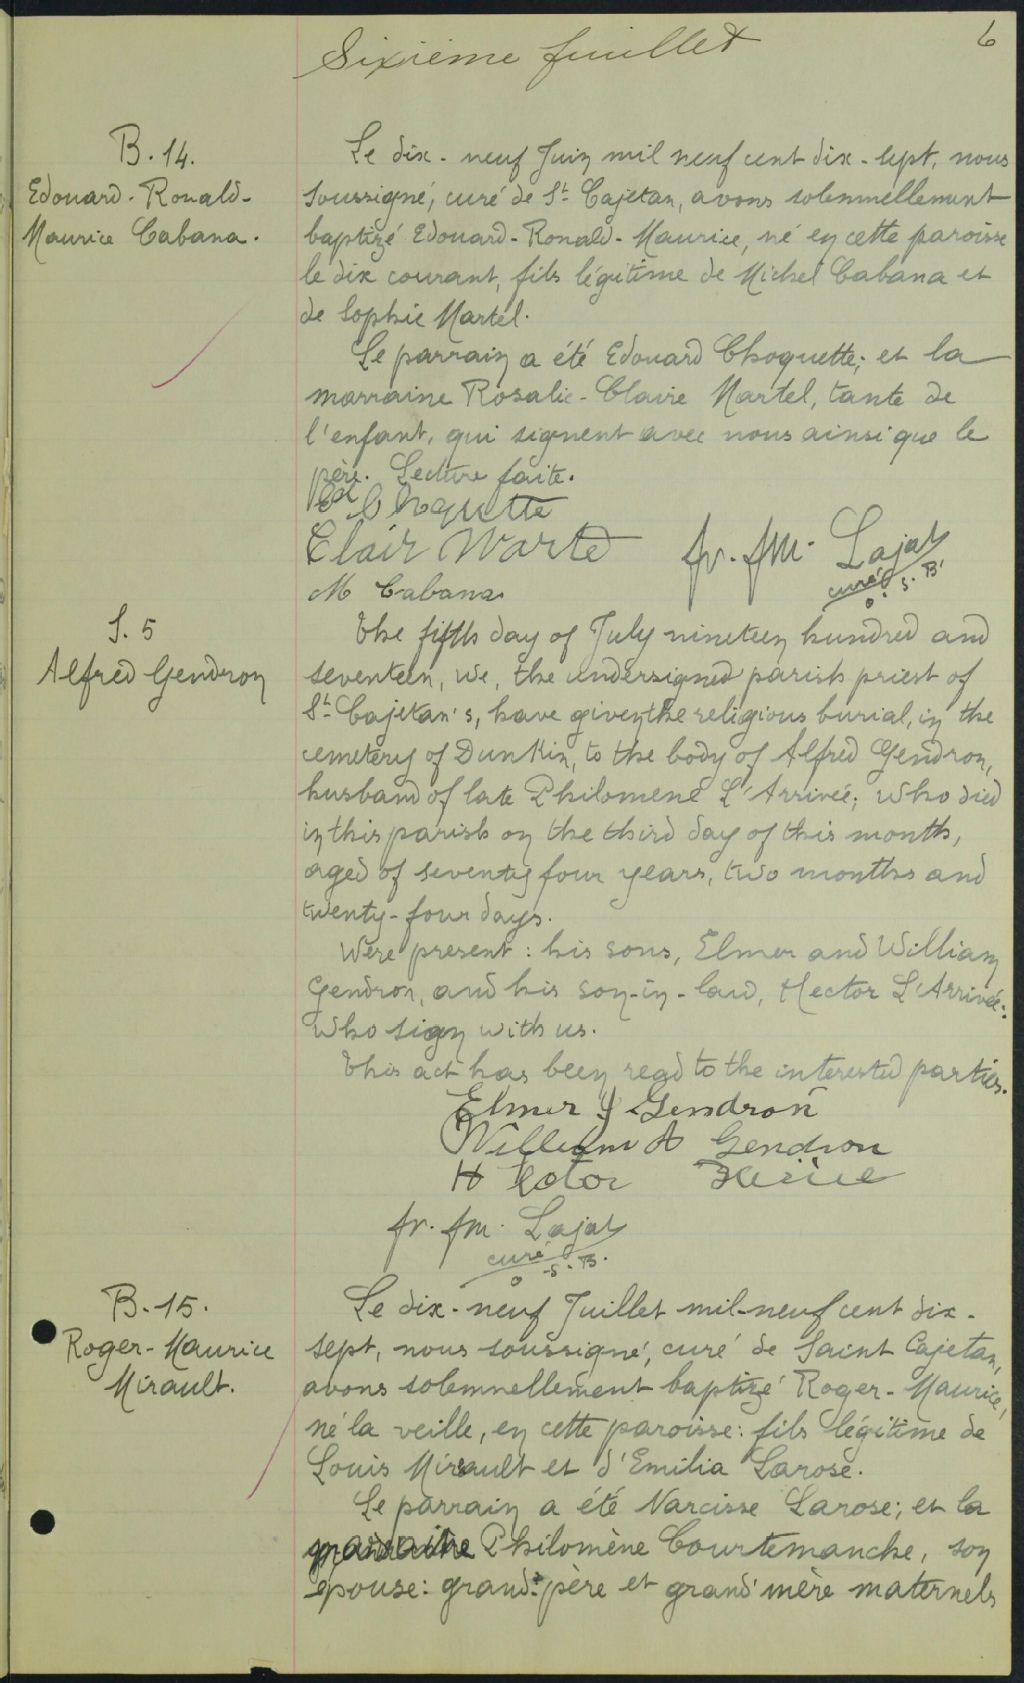 6
Sixième feuillet
B. 14.
Edouard-Ronald-
Maurice Cabana.
Le dix-neuf Juin mil neuf cent dix-sept, nous
soussigné, curé de St Cajetan, avons solennellement
baptizé Edouard-Ronald-Maurice, né en cette paroisse
le dix courant, fils légitime de Michel Cabana et
de Sophie Martel.
Le parrain a été Edouard Choquette; et la
marraine Rosalie-Claire Martel, tante de
l'enfant, qui signent avec nous ainsi que le
père. Lecture faite.
Ed Choquette
Clair Martel
M Cabana
fr. fm. Lajat
curé o. s. B.
S. 5
Alfred Gendron
The fifth day of July nineteen hundred and
seventeen, we, the undersigned parish priest of
St Cajetan's, have given the religious burial, in the
cemetery of Dunkin, to the body of Alfred Gendron,
husband of late Philomene L'Arrivée; who died
in this parish on the third day of this month,
aged of seventy four years, two months and
twenty-four days.
Were present: his sons, Elmer and William
Gendron, and his son-in-law, Hector L'Arrivée:
who sign with us.
This act has been read to the interested parties.
Elmer J Gendron
William A Gendron
Hector
fr. fm. Lajat
curé o. s. B.
B. 15.
Roger-Maurice
Mirault.
Le dix-neuf Juillet mil-neuf cent dix-
sept, nous soussigné, curé de Saint Cajetan,
avons solemnellement baptizé Roger-Maurice,
né la veille, en cette paroisse: fils légitime de
Louis Mirault et d'Emilia Larose.
Le parrain a été Narcisse Larose; et la
marraine Philomène Courtemanche, son
épouse: grand-père et grand'mère maternels